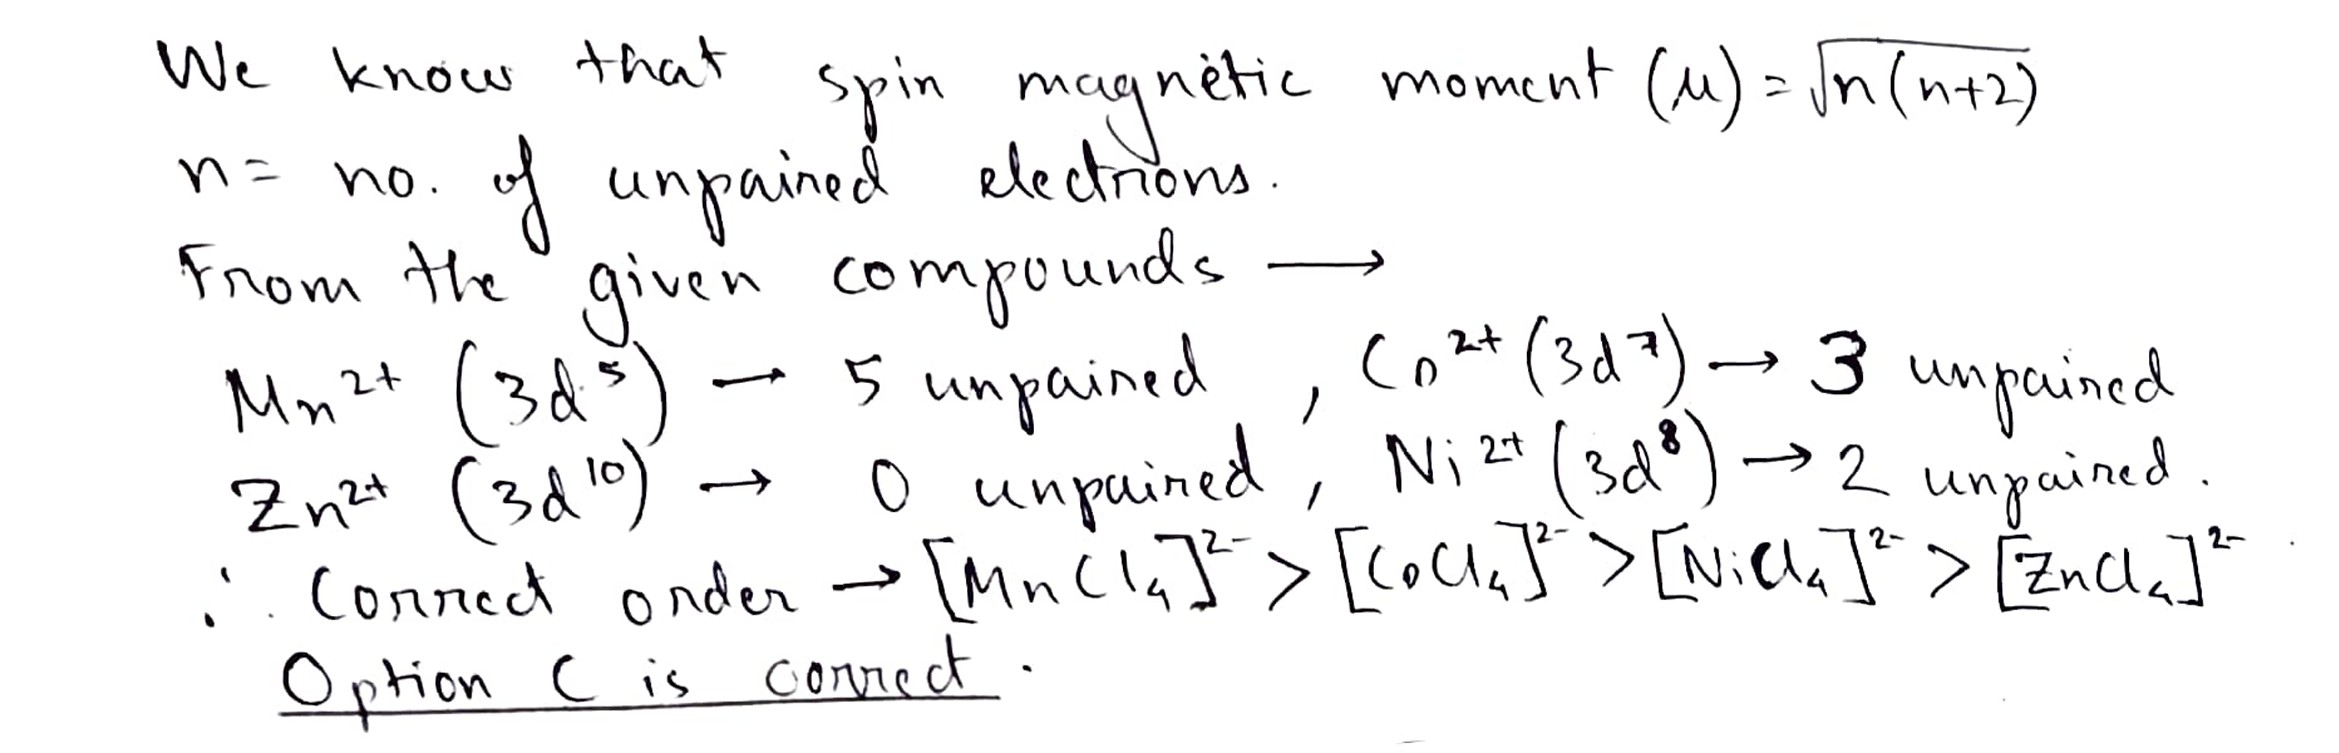 We know that spin magnetic moment (μ) = √n(n+2)
n = no. of unpaired electrons.
From the given compounds →
Mn²⁺ (3d⁵) → 5 unpaired , Co²⁺ (3d⁷) → 3 unpaired
Zn²⁺ (3d¹⁰) → 0 unpaired , Ni²⁺ (3d⁸) → 2 unpaired .
∴ Correct order → [MnCl₄]²⁻ > [CoCl₄]²⁻ > [NiCl₄]²⁻ > [ZnCl₄]²⁻ .
Option C is correct .